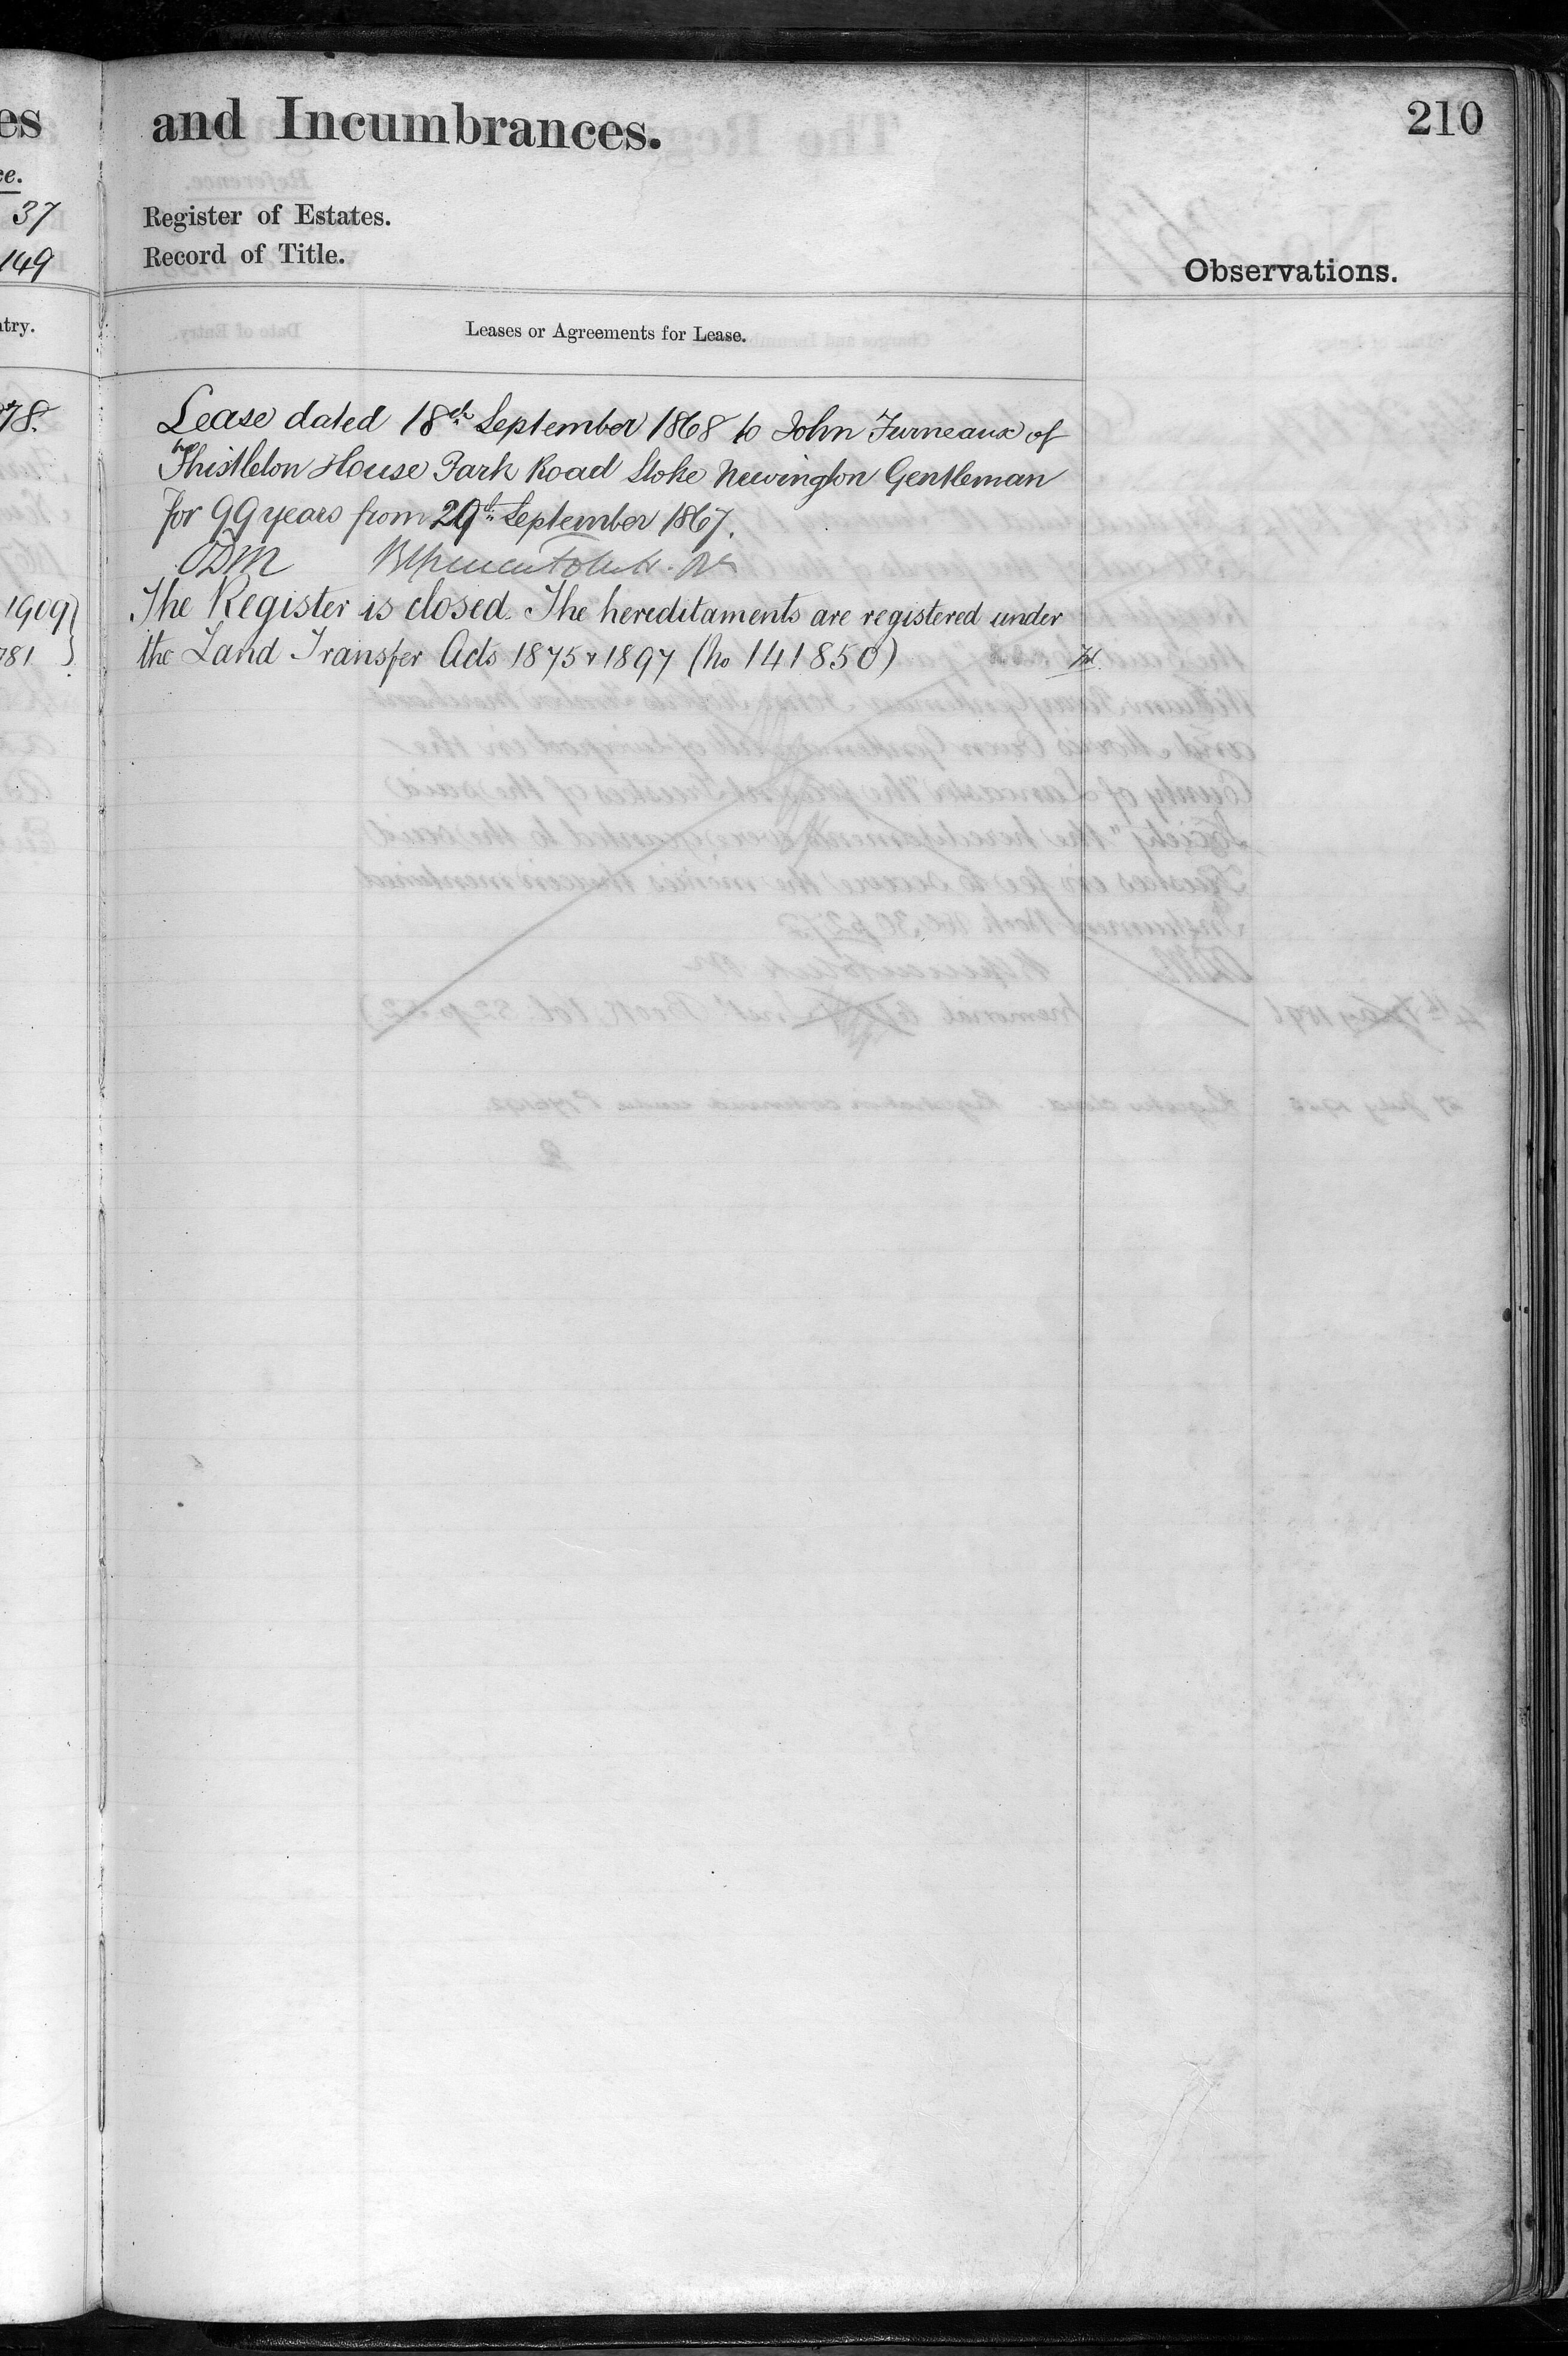 es
and Incumbrances.
210
ce.
37
Register of Estates.
149
Record of Title.
Observations.
ntry.
Leases or Agreements for Lease.
78.
Lease dated 18th September 1868 to John Furneaux of
Thistleton House Park Road Stoke Newington Gentleman
for 99 years from 29th September 1867.
ODM
1909
The Register is closed. The hereditaments are registered under
781
the Land Transfer Acts 1875 & 1897 (No 141850)